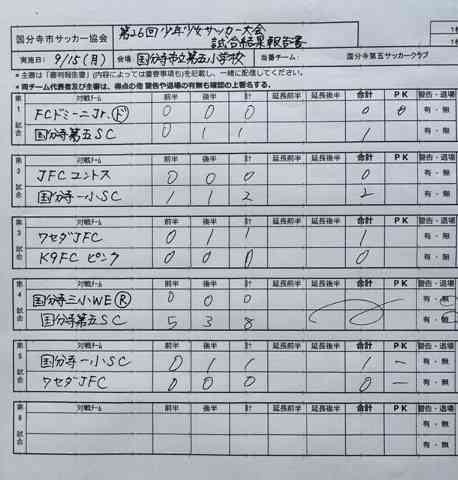 国分寺市サッカー協会 第26回少年少女サッカー大会
試合結果報告書
実施日: 9/15(月) 会場 国分寺市立第五小学校 当番チーム: 国分寺第五サッカークラブ
*主審は「審判報告書」(内容によっては重要事項も)を記載し、一緒に配信してください。
*両チーム代表者及び主審は、得点の他 警告や退場の有無も確認の上署名する。
第1試合 対戦チーム 前半 後半 計 延長前半 延長後半 合計 PK 警告・退場
FCドミーニJr.ド 0 0 0 0 0 有・無
国分寺第五SC 0 1 1 1 有・無
第2試合 対戦チーム 前半 後半 計 延長前半 延長後半 合計 PK 警告・退場
JFCコントス 0 0 0 0 有・無
国分寺一小SC 1 1 2 2 有・無
第3試合 対戦チーム 前半 後半 計 延長前半 延長後半 合計 PK 警告・退場
ワセダJFC 0 1 1 1 有・無
K9FC ピンク 0 0 0 0 有・無
第4試合 対戦チーム 前半 後半 計 延長前半 延長後半 合計 PK 警告・退場
国分寺三小WE R 0 0 0 有・無
国分寺第五SC 5 3 8 有・無
第5試合 対戦チーム 前半 後半 計 延長前半 延長後半 合計 PK 警告・退場
国分寺一小SC 0 1 1 1 - 有・無
ワセダJFC 0 0 0 0 - 有・無
第6試合 対戦チーム 前半 後半 計 延長前半 延長後半 合計 PK 警告・退場
有・無
有・無